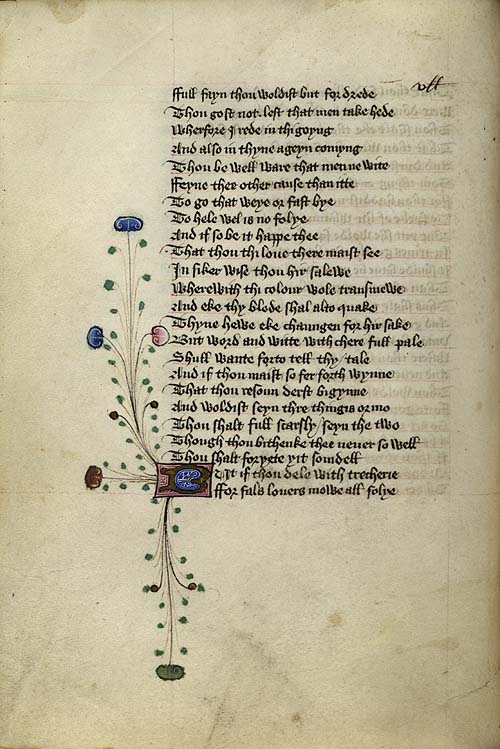 vii
Ffull fayn thou woldist but for drede
Thou gost not. lest that men take hede
Wherfore I rede in thi goyng
And also in thyne ageyn comyng
Thou be well ware that menne wite
Feyne thee other cause than itte
To go that weye or fast bye
To hele wel is no folye
And if so be it happe thee
That thou thi loue there maist see
In siker wise thou hir salewe
Wherewith thi colour wole transmewe
And eke thy blode shal alto quake
Thyne hewe eke chaungen for hir sake
But word and witte with chere full pale
Shull wante forto tell thy tale
And if thou maist so fer forth wynne
That thou resoun derst bigynne
And woldist seyn thre thingis or mo
Thou shalt full scarsly seyn the two
Though thou bithenke thee never so well
Thou shalt foryete yit somdell
But if thou dele with trecherie
Ffor fals lovers mowe all folye